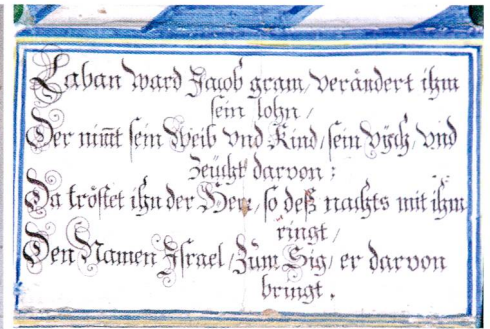 Laban ward Jacob gram/ verändert ihm
sein lohn/
Der nim̄t sein Weib vnd Kind/ sein Vych/ vnd
zeücht darvon:
Da tröstet ihn der Herr/ so deß nachts mit ihm
ringt/
Den Namen Israel/ zum Sig/ er darvon
bringt.